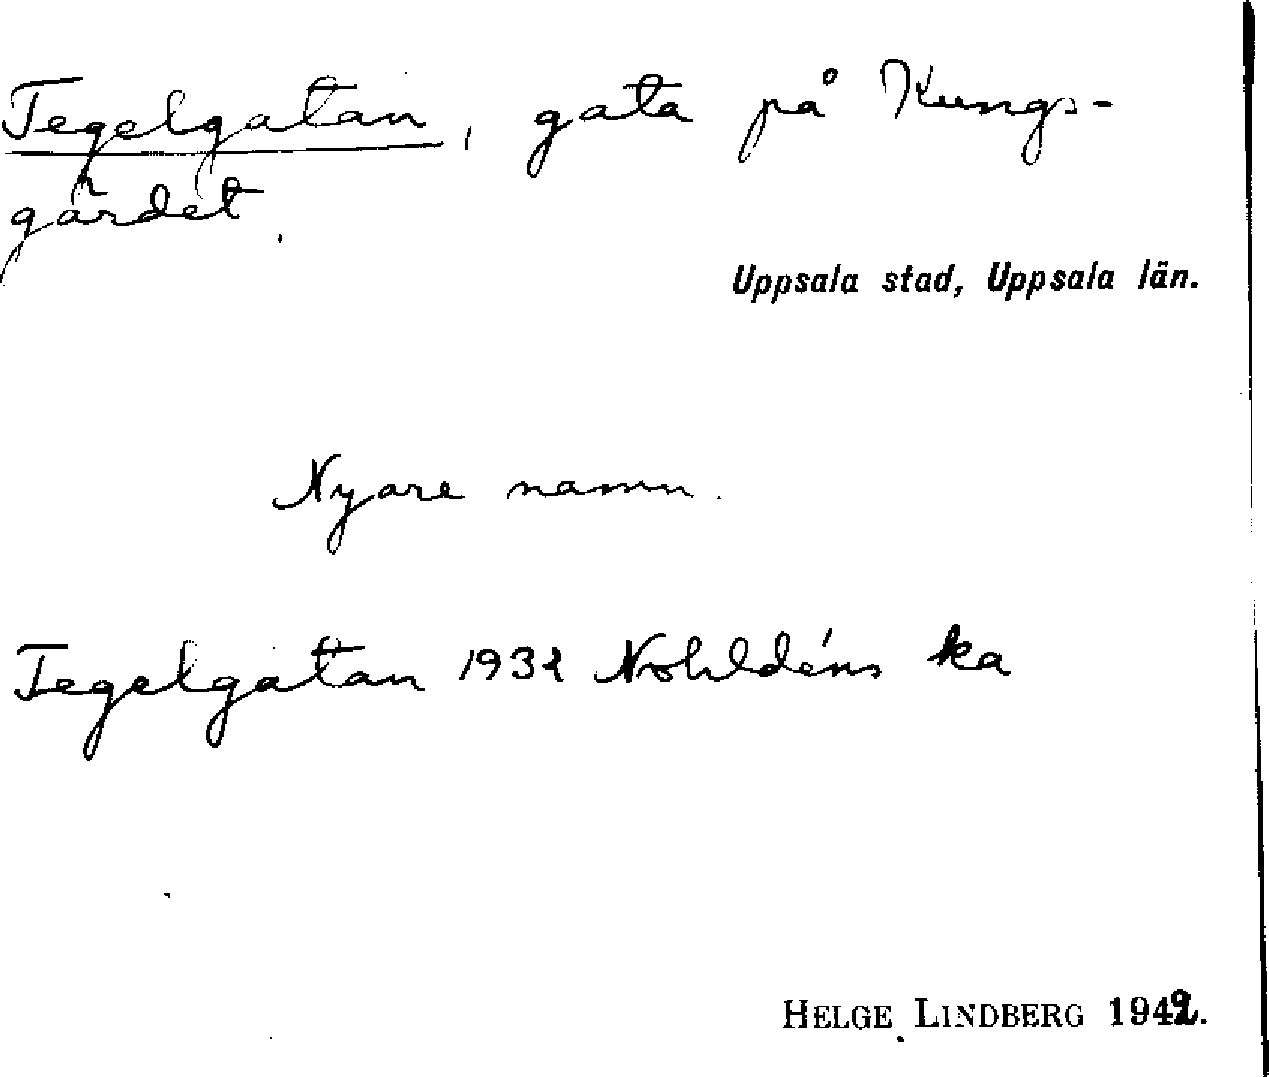 Tegelgatan, gata på Kungs-
gärdet.
Uppsala stad, Uppsala län.
Nyare namn.
Tegelgatan 1931 Nohldéns ka
HELGE LINDBERG 1942.